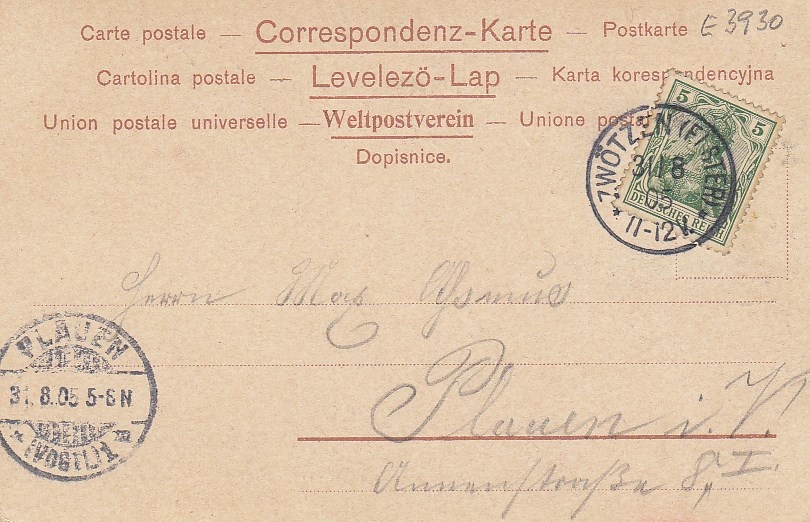 Carte postale — Correspondenz-Karte — Postkarte E 3930
Cartolina postale — Levelezö-Lap — Karta korespondencyjna
Union postale universelle — Weltpostverein — Unione posta
Dopisnice.
5 5
DEUTSCHES REICH
ZWÖTZEN (ELSTER)
31 8
05
11-12V.
Herrn Max
Plauen i. V.
Annenstraße 8, I.
PLAUEN
31.8.05 5-6N
(VOGTL) 1